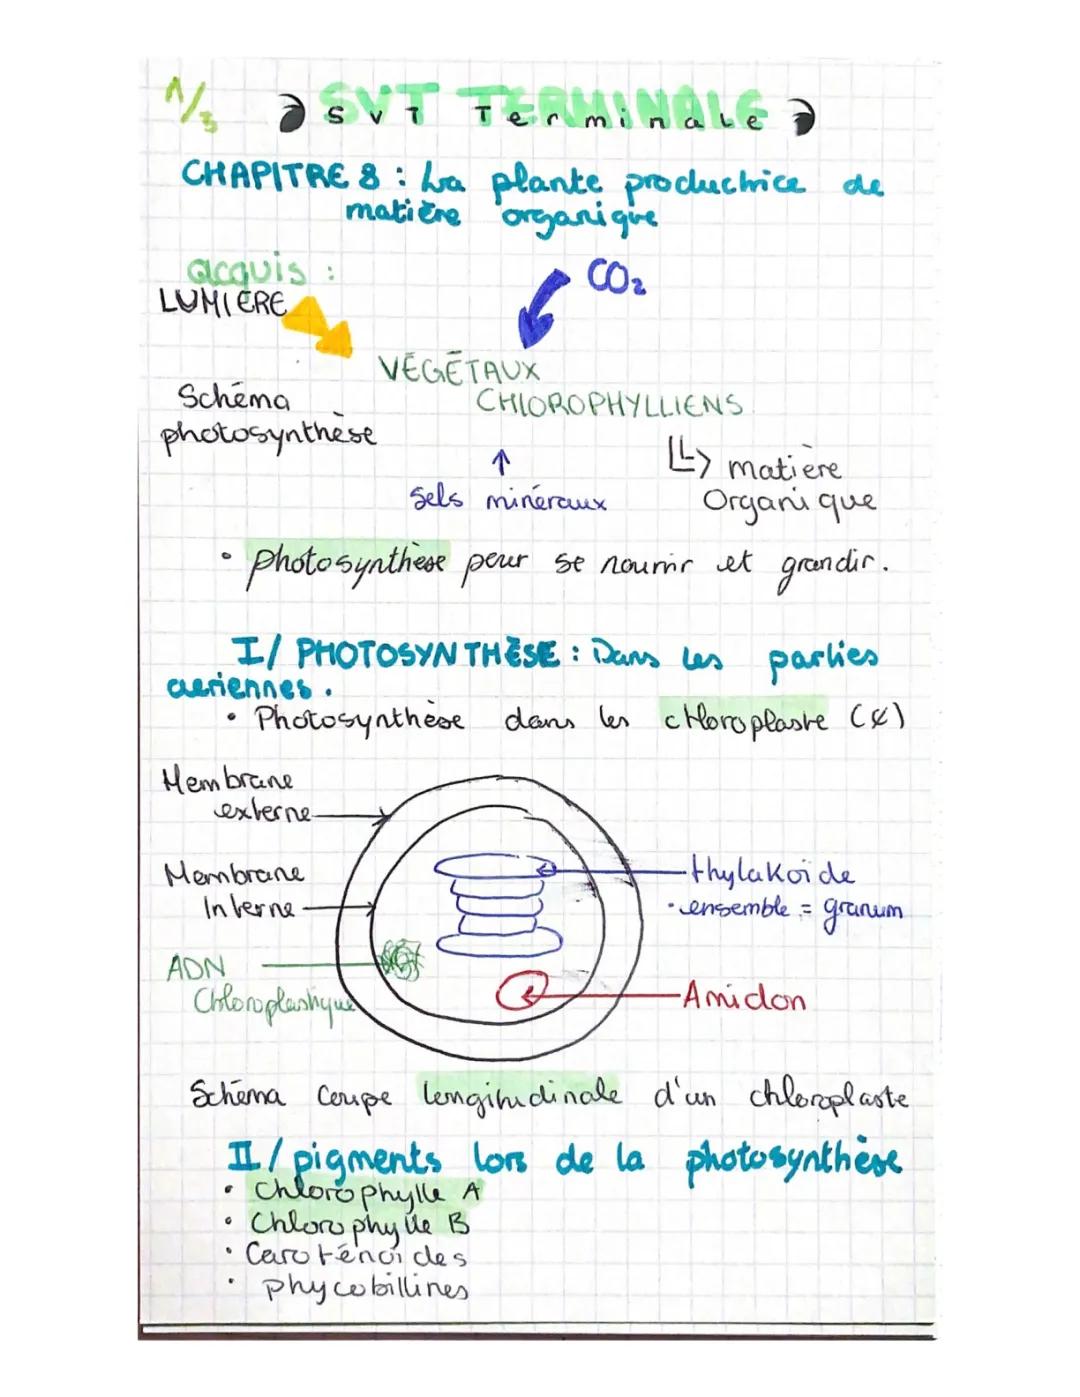 1/3
SVT TERMINALE
SVT Terminale
CHAPITRE 8 : La plante productrice de
matière organique
acquis :
LUMIERE
CO2
VÉGÉTAUX
CHlOROPHYLLIENS
Schéma
photosynthèse
↑
matière
Organique
Sels minéraux
• photosynthèse pour se nourrir et grandir.
I/ PHOTOSYNTHÈSE : Dans les parties
aeriennes.
• Photosynthèse dans les chloroplaste (¢)
Membrane
externe
Membrane
Interne
thylakoïde
• ensemble = granum
ADN
Chloroplastique
Amidon
Schéma coupe longitudinale d'un chloroplaste
II/ pigments lors de la photosynthèse
• Chlorophylle A
• Chlorophylle B
• Caroténoïdes
• phycobillines